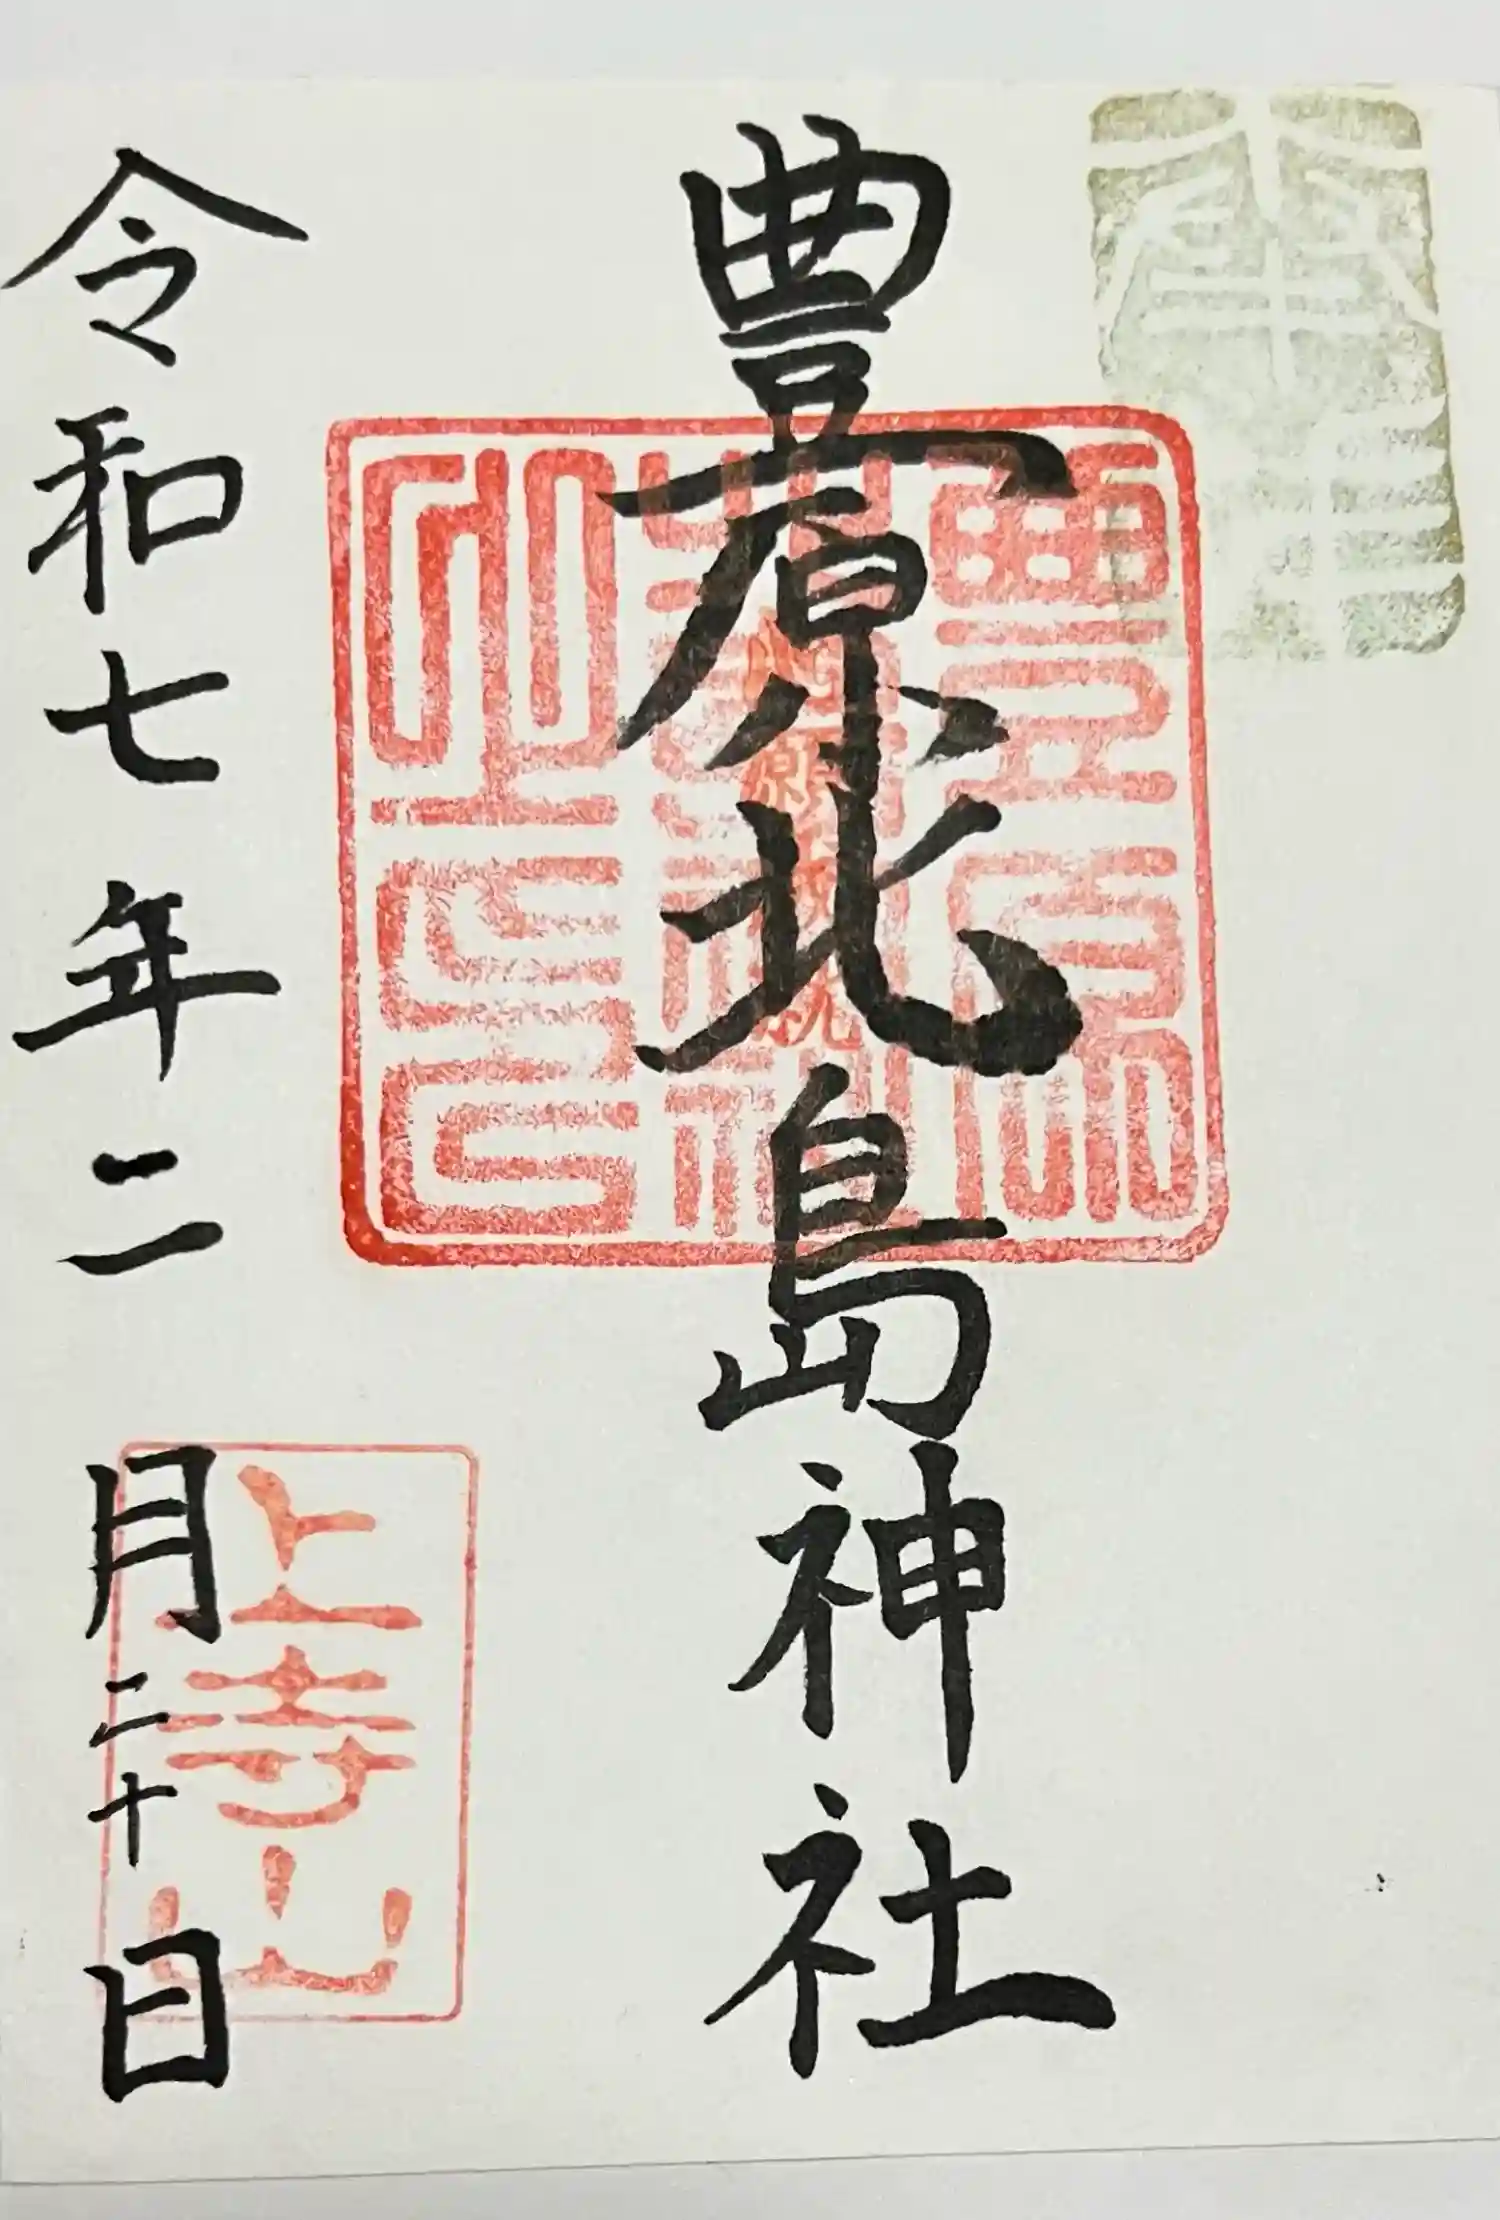 奉拝
豊原北島神社
上寺山
令和七年二月二十日